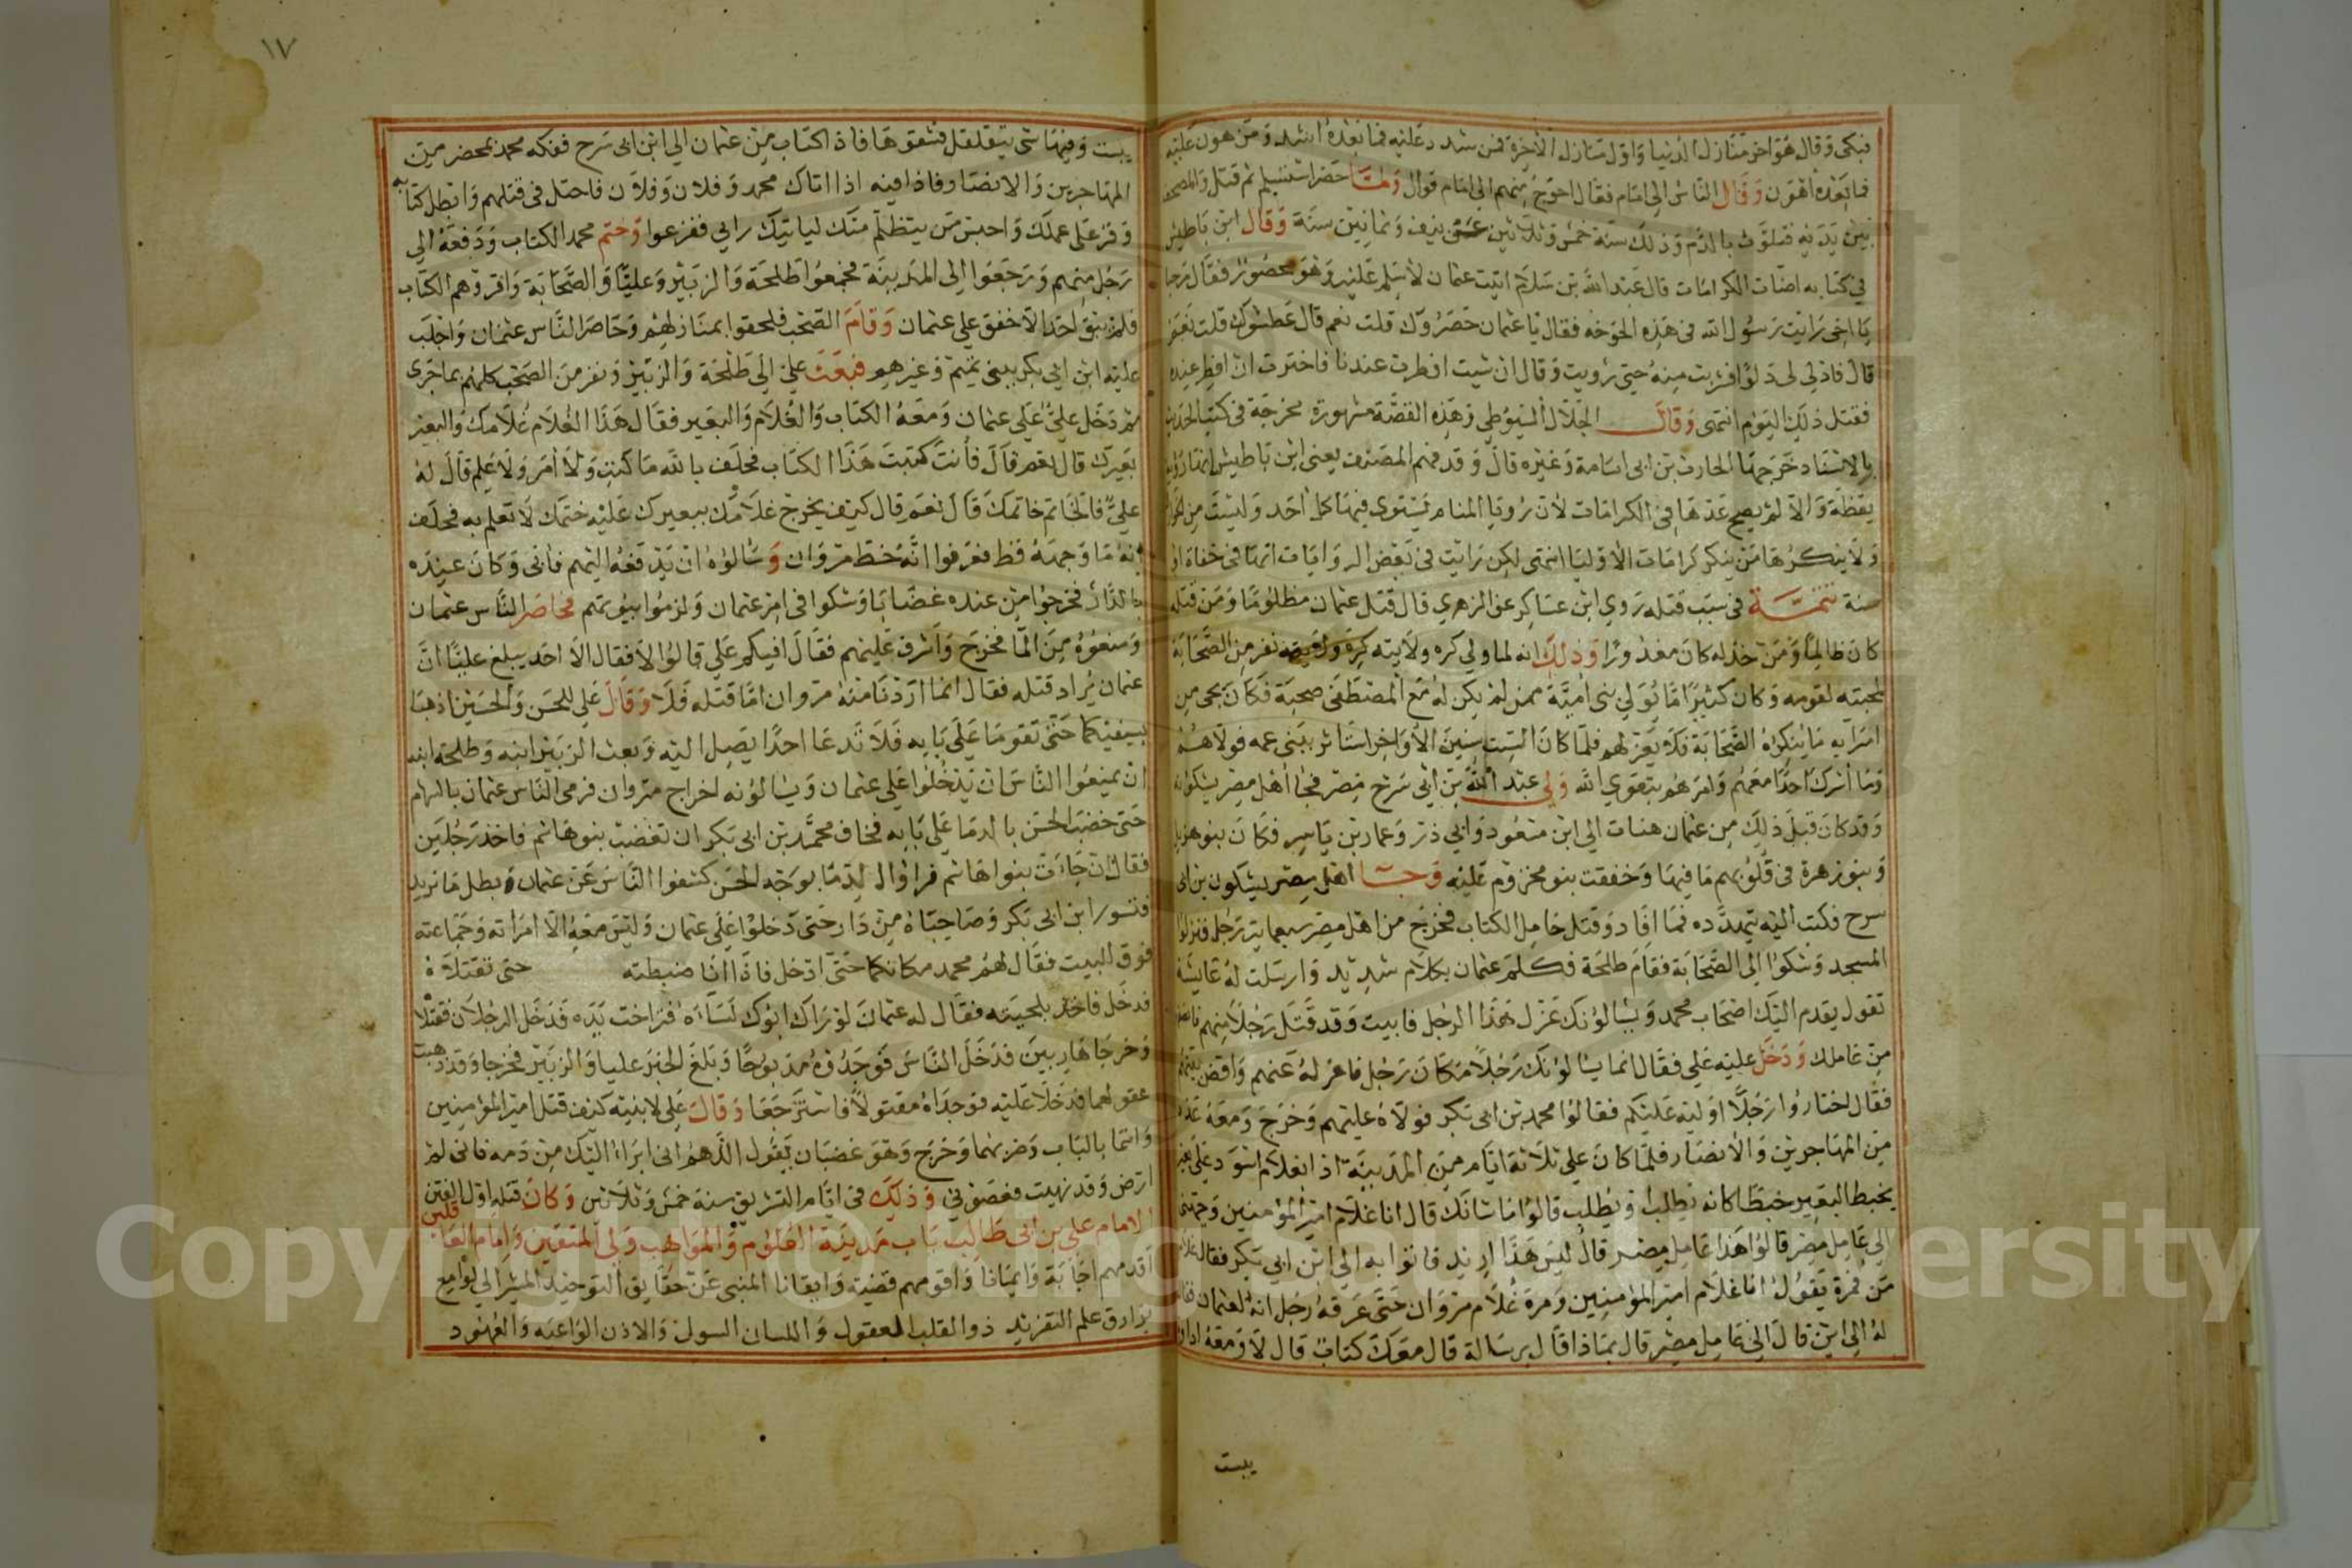 فبكى وقال هو اخر منازل الدنيا واول منازل الاخرة فمن شدد عليه فما بعده اشد ومن هون عليه
فما بعده اهون وقال الناس الي امام فقال احوج منهم الي امام قوال ولما حضر استسلم ثم قتل والمصحف
بين يديه فتلوث بالدم وذلك سنة خمس وثلاثين عن نيف وثمانين سنة وقال ابن باطيش
في كتابه اثبات الكرامات قال عبد الله بن سلام اتيت عثمان لاسلم عليه وهو محصور فقال مرحبا
يا اخي رايت رسول الله في هذه الخوخه فقال يا عثمان حصروك قلت نعم قال عطشوك قلت نعم
قال فادلي لى دلوا فشربت منه حتى رويت وقال ان شيت افطرت عندنا فاخترت ان افطر عنده
فقتل ذلك اليوم انتهى وقال الجلال السيوطي وهذه القصة مشهورة مخرجة في كتب الحديث
بالاسناد خرجها الحارث بن ابى اسامة وغيره قال وقد فهم المصنف يعنى ابن باطيش انها رؤية
يقظة والا لم يصح عدها في الكرامات لان رؤيا المنام يستوي فيها كل احد وليست من الخوارق
ولا ينكرها من ينكر كرامات الاوليا انتهى لكن رايت في بعض الروايات انها في خفاة او
سنة تتمة في سبب قتله روي ابن عساكر عن الزهري قال قتل عثمان مظلوما ومن قتله
كان ظالما ومن خذله كان معذورا وذلك انه لما ولي كره ولايته نفر من الصحابة
لمحبته لقومه وكان كثيرا ما يولي بني امية ممن لم يكن له مع المصطفى صحبة فكان يجى من
امرايه ما ينكره الصحابة فلا يعزلهم فلما كان الست سنين الاواخر استاثر ببني عمه فولاهم
وما اشرك احدا معهم وامرهم بتقوي الله ولي عبد الله بن ابي سرح مصر فجا اهل مصر يشكونه
وقد كان قبل ذلك من عثمان هنات الي ابن مسعود وابي ذر وعمار بن ياسر فكان بنو هذيل
وبنو زهرة في قلوبهم ما فيها وخففت بنو مخزوم عليه وجا اهل مصر يشكون بن ابي
سرح فكتب اليه يتهدده فما افاد وقتل حامل الكتاب فخرج من اهل مصر سبعماية رجل فنزلوا
المسجد وشكوا الي الصحابة فقام طلحة فكلم عثمان بكلام شديد وارسلت له عايشة
تقول يقدم اليك اصحاب محمد ويسالونك عزل هذا الرجل فابيت وقد قتل رجلا منهم
من عاملك ودخل عليه علي فقال انما يسالونك رجلا مكان رجل فاعزله عنهم واقض بينهم
فقال اختاروا رجلا اوليه عليكم فقالوا محمد بن ابى بكر فولاه عليهم وخرج ومعه عدة
من المهاجرين والانصار فلما كان علي ثلاثة ايام من المدينة اذا بغلام اسود علي بعير
يخبط البعير خبطا كانه يطلب او يطلب قالوا ما شانك قال انا غلام امير المؤمنين وجهني
الي عامل مصر قالوا هذا عامل مصر قال ليس هذا اريد فاتوا به الي ابن ابي بكر فقال غلام
من فمرة يقول انا غلام امير المؤمنين ومرة غلام مروان حتى عرفه رجل انه لعثمان فقال
له الي اين قال الي عامل مصر قال بماذا قال برسالة قال معك كتاب قال لا ومعه اداوة
يبست
١٧
يبست وفيها شي يتقلقل فشقوها فاذا كتاب من عثمان الي ابن ابى سرح ففكه محمد بمحضر من
المهاجرين والانصار فاذا فيه اذا اتاك محمد وفلان وفلان فاحتل في قتلهم وابطل كتابه
وقر على عملك واحبس من يتظلم منك لياتيك رايي ففزعوا وختم محمد الكتاب ودفعه الي
رجل منهم ورجعوا الي المدينة فجمعوا طلحة والزبير وعليا والصحابة واقروهم الكتاب
فلم يبق احد الا حنق علي عثمان وقام الصحب فلحقوا بمنازلهم وحاصر الناس عثمان واجلب
عليه ابن ابي بكر ببني تميم وغيرهم فبعث علي الي طلحة والزبير ونفر من الصحب كلهم بما جرى
ثم دخل علي علي عثمان ومعه الكتاب والغلام والبعير فقال هذا الغلام غلامك والبعير
بعيرك قال نعم قال فانت كتبت هذا الكتاب فحلف بالله ما كتب ولا امر ولا علم قال له
علي فالخاتم خاتمك قال نعم قال كيف يخرج غلامك ببعيرك عليه ختمك لا تعلم به فحلف
انه ما وجهه قط فعرفوا انه خط مروان وسالوه ان يدفعه اليهم فابى وكان عنده
بالدار فخرجوا من عنده غضابا وشكوا في امر عثمان ولزموا بيوتهم فحاصر الناس عثمان
ومنعوه من الما فخرج واشرف عليهم فقال افيكم علي قالوا لا فقال الا احد يبلغ عليا ان
عثمان يراد قتله فقال انما اردنا منه مروان اما قتله فلا وقال علي للحسن والحسين اذهبا
بسيفيكما حتى تقوما علي بابه فلا تدعا احدا يصل اليه وبعث الزبير ابنه وطلحة ابنه
ان يمنعوا الناس ان يدخلوا علي عثمان ويسالونه اخراج مروان فرمى الناس عثمان بالسهام
حتى خضب الحسن بالدما علي بابه فخاف محمد بن ابى بكر ان تغضب بنو هاشم فاخذ رجلين
فقال ان جاءت بنوا هاشم فراوا الدما بوجه الحسن كشفوا الناس عن عثمان وبطل ما نريد
فتسور ابن ابى بكر وصاحباه من دار حتى دخلوا علي عثمان وليس معه الا امراته وجماعته
فوق البيت فقال لهم محمد مكانكما حتى ادخل فاذا انا ضبطته حتى تقتلاه
فدخل فاخذ بلحيته فقال له عثمان لو راك ابوك لساءه فتراخت يده فدخل الرجلان فقتلاه
وخرجا هاربين فدخل الناس فوجدوه مذبوحا وبلغ الخبر عليا والزبير فخرجا وقد ذهبت
عقولهما فدخلا عليه فوجداه مقتولا فاسترجعا وقال علي لابنيه كيف قتل امير المؤمنين
وانتما بالباب وضربهما وخرج وهو غضبان يقول اللهم انى ابراء اليك من دمه فاني لم
ارض وقد نهيت فعصوني وذلك في ايام التشريق سنة خمس وثلاثين وكان قتله اول الفتن
الامام علي بن ابى طالب باب مدينة العلوم والمواهب ولي المتقين وامام العادلين
اقدمهم اجابة وايمانا واقومهم قضية وايقانا المنبى عن حقايق التوحيد المشير الي لوامع
بوارق علم التفريد ذو القلب العقول واللسان السول والاذن الواعيه والعهود